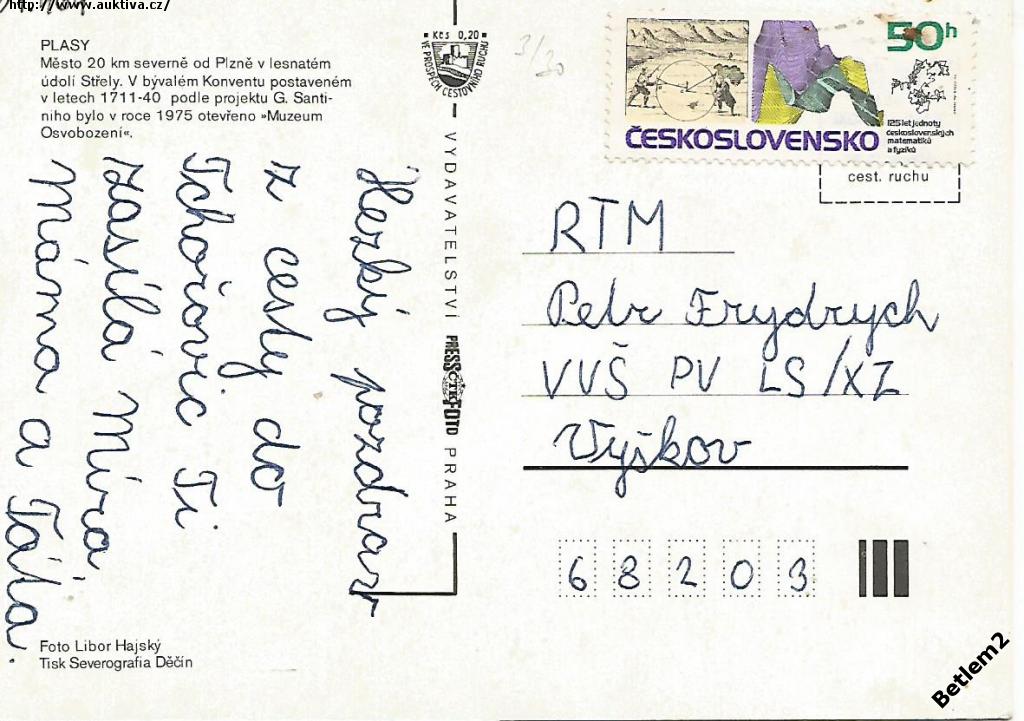 http://www.auktiva.cz/
PLASY
Město 20 km severně od Plzně v lesnatém
údolí Střely. V bývalém Konventu postaveném
v letech 1711-40 podle projektu G. Santi-
niho bylo v roce 1975 otevřeno »Muzeum
Osvobození«.
Hezký pozdrav
z cesty do
Tchořovic Ti
zasílá Míra
Máma a Táta.
Foto Libor Hajský
Tisk Severografia Děčín
Kčs 0,20
VE PROSPĚCH CESTOVNÍHO RUCHU
VYDAVATELSTVÍ PRESSFOTO PRAHA
ČTK
3/30
50h
125 let jednoty
československých
matematiků
a fyziků
ČESKOSLOVENSKO
cest. ruchu
RTM
Petr Frydrych
VVŠ PV LS/XZ
Vyškov
68203
Betlem2